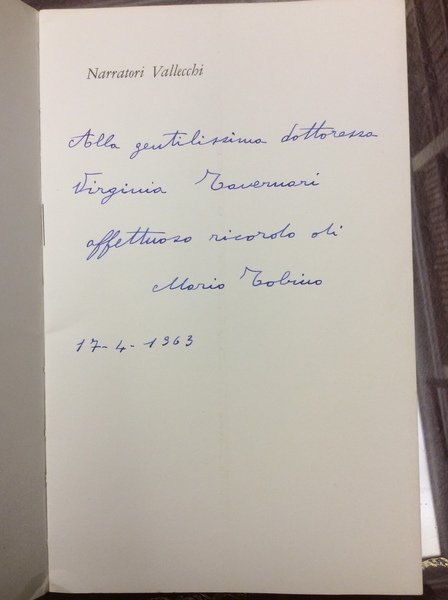 Narratori Vallecchi
Alla gentilissima dottoressa
Virginia Tavernari
affettuoso ricordo di
Mario Tobino
17-4-1963